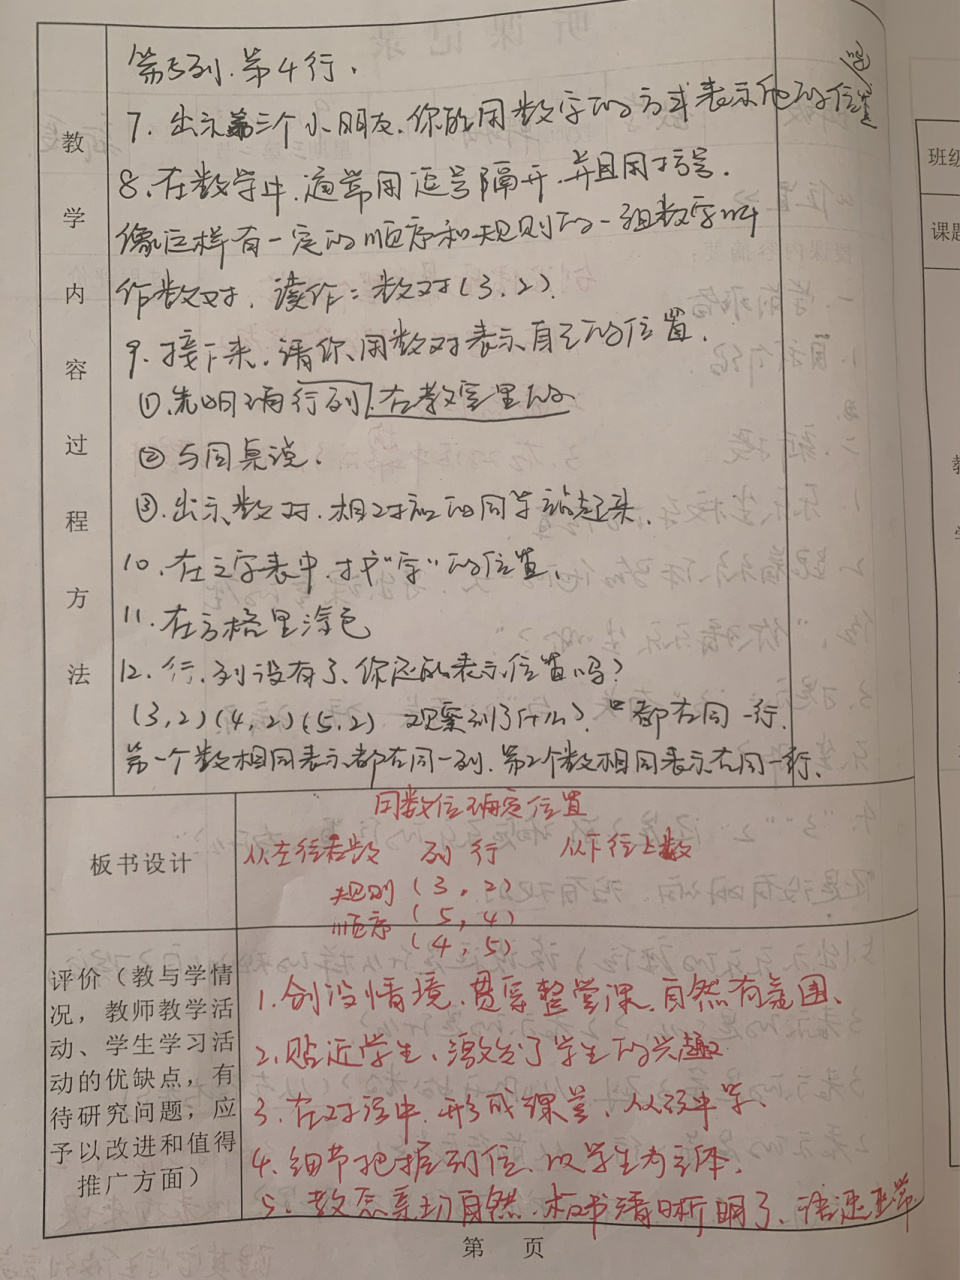 教学内容过程方法
第5列.第4行.
7. 出示第三个小朋友.你能用数字的方式表示他的位置
8.在数学中.通常用逗号隔开.并且用括号.
像这样有一定的顺序和规则的一组数字叫
作数对.读作:数对(3,2).
9.接下来.请你用数对表示自己的位置.
①.先明确行列.在教室里的
②与同桌说.
③.出示数对.相对应的同学站起来.
10.在文字表中.找"字"的位置.
11.在方格里涂色
12.行.列没有了.你还能表示位置吗?
(3,2)(4,2)(5,2) 观察到了什么? 都在同一行.
第一个数相同表示都在同一列.第2个数相同表示在同一行.
板书设计
用数位确定位置
从左往右数 列 行 从下往上数
规则 (3,2)
顺序 (5,4)
(4,5)
评价（教与学情况，教师教学活动、学生学习活动的优缺点，有待研究问题，应予以改进和值得推广方面）
1.创设情境.贯穿整堂课.自然有氛围.
2.贴近学生.激发了学生的兴趣
3.在对话中.形成课堂.从孩中学.
4.细节把握到位.以学生为主体.
5.教态亲切自然.板书清晰明了.语速正常
第 页
班级
课题